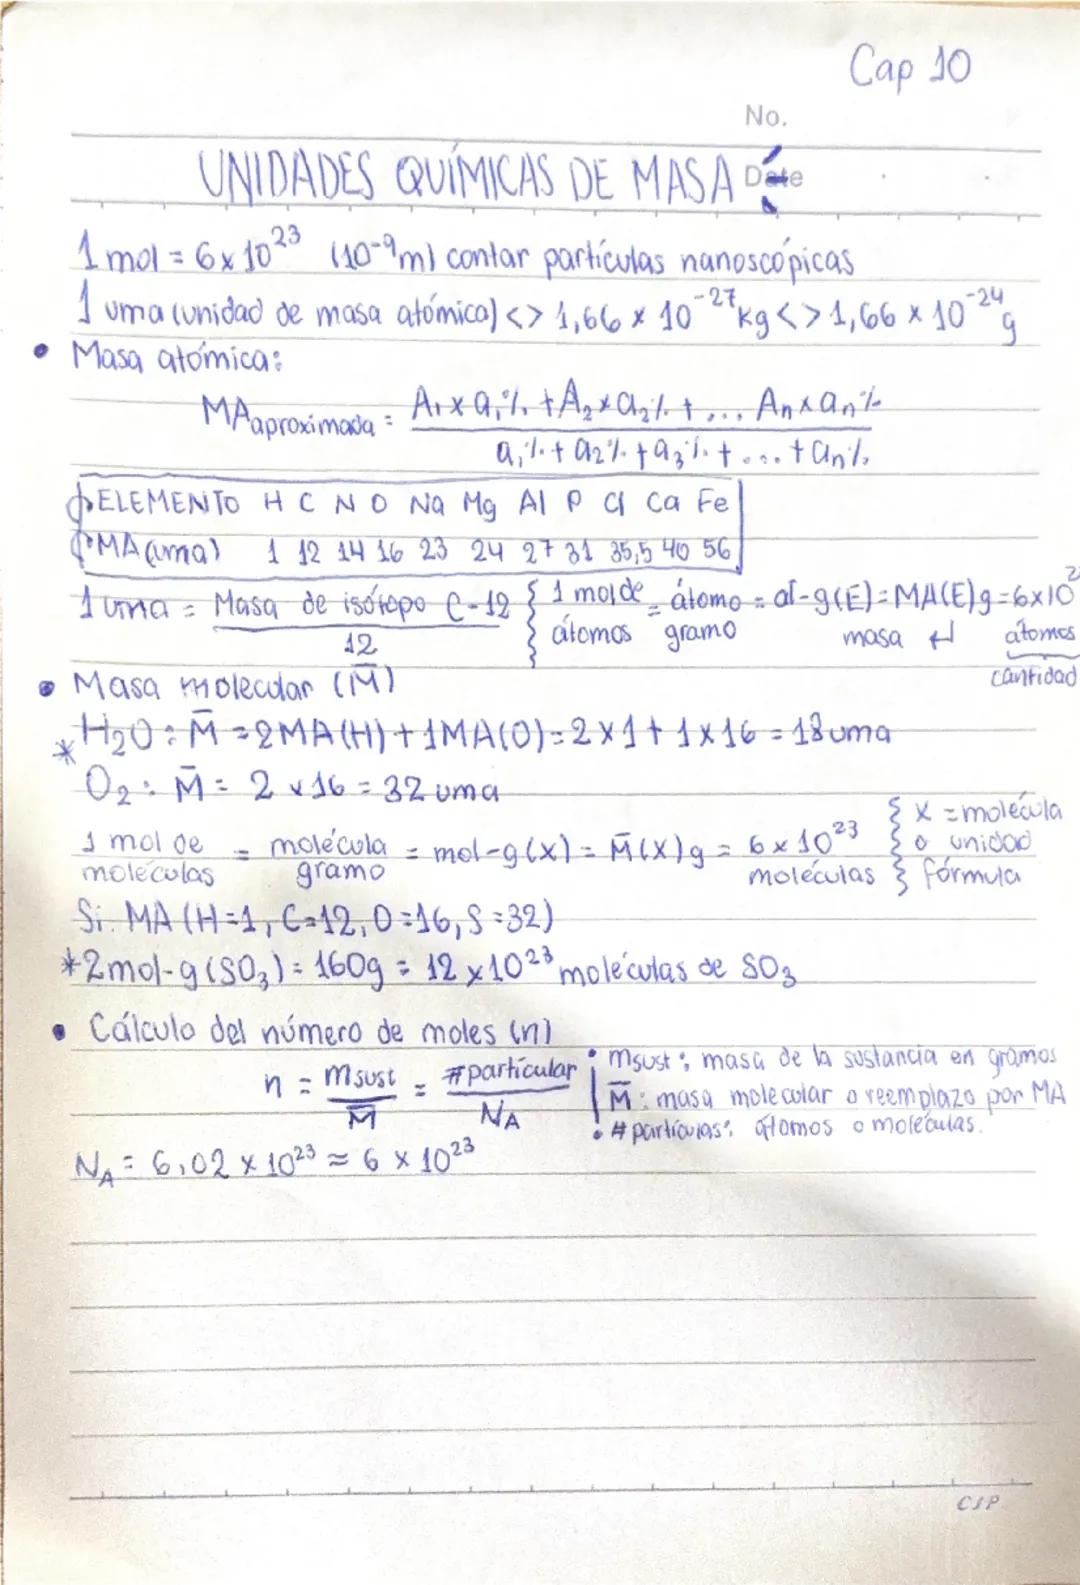 Cap 10
No.
UNIDADES QUÍMICAS DE MASA Date
1 mol = 6 x 10²³ (10⁻⁹m) contar partículas nanoscópicas
1 uma (unidad de masa atómica) <> 1,66 x 10⁻²⁷kg <> 1,66 x 10⁻²⁴g
• Masa atómica:
MAaproximada = A₁ x a₁% + A₂ x a₂% + ... An x an%
a₁% + a₂% + a₃% + ... + an%
ELEMENTO H C N O Na Mg Al P Cl Ca Fe
MA (uma) 1 12 14 16 23 24 27 31 35,5 40 56
1 uma = Masa de isótopo C-12 { 1 mol de = átomo = at-g(E) = MA(E)g = 6x10²
12 átomos gramo masa ↵ átomos
cantidad
• Masa molecular (M̄)
* H₂O : M̄ = 2MA(H) + 1MA(O) = 2 x 1 + 1 x 16 = 18 uma
O₂ : M̄ = 2 x 16 = 32 uma
1 mol de = molécula = mol-g(x) = M̄(x)g = 6 x 10²³ { x = molécula
moléculas gramo moléculas o unidad
fórmula
Si. MA (H=1, C=12, O=16, S=32)
*2mol-g(SO₃) = 160g = 12 x 10²³ moléculas de SO₃
• Cálculo del número de moles (n)
n = msust = #partícular • msust : masa de la sustancia en gramos
M̄ NA M̄ : masa molecular o reemplazo por MA
• # partículas: átomos o moléculas.
NA = 6,02 x 10²³ ≈ 6 x 10²³
CJP